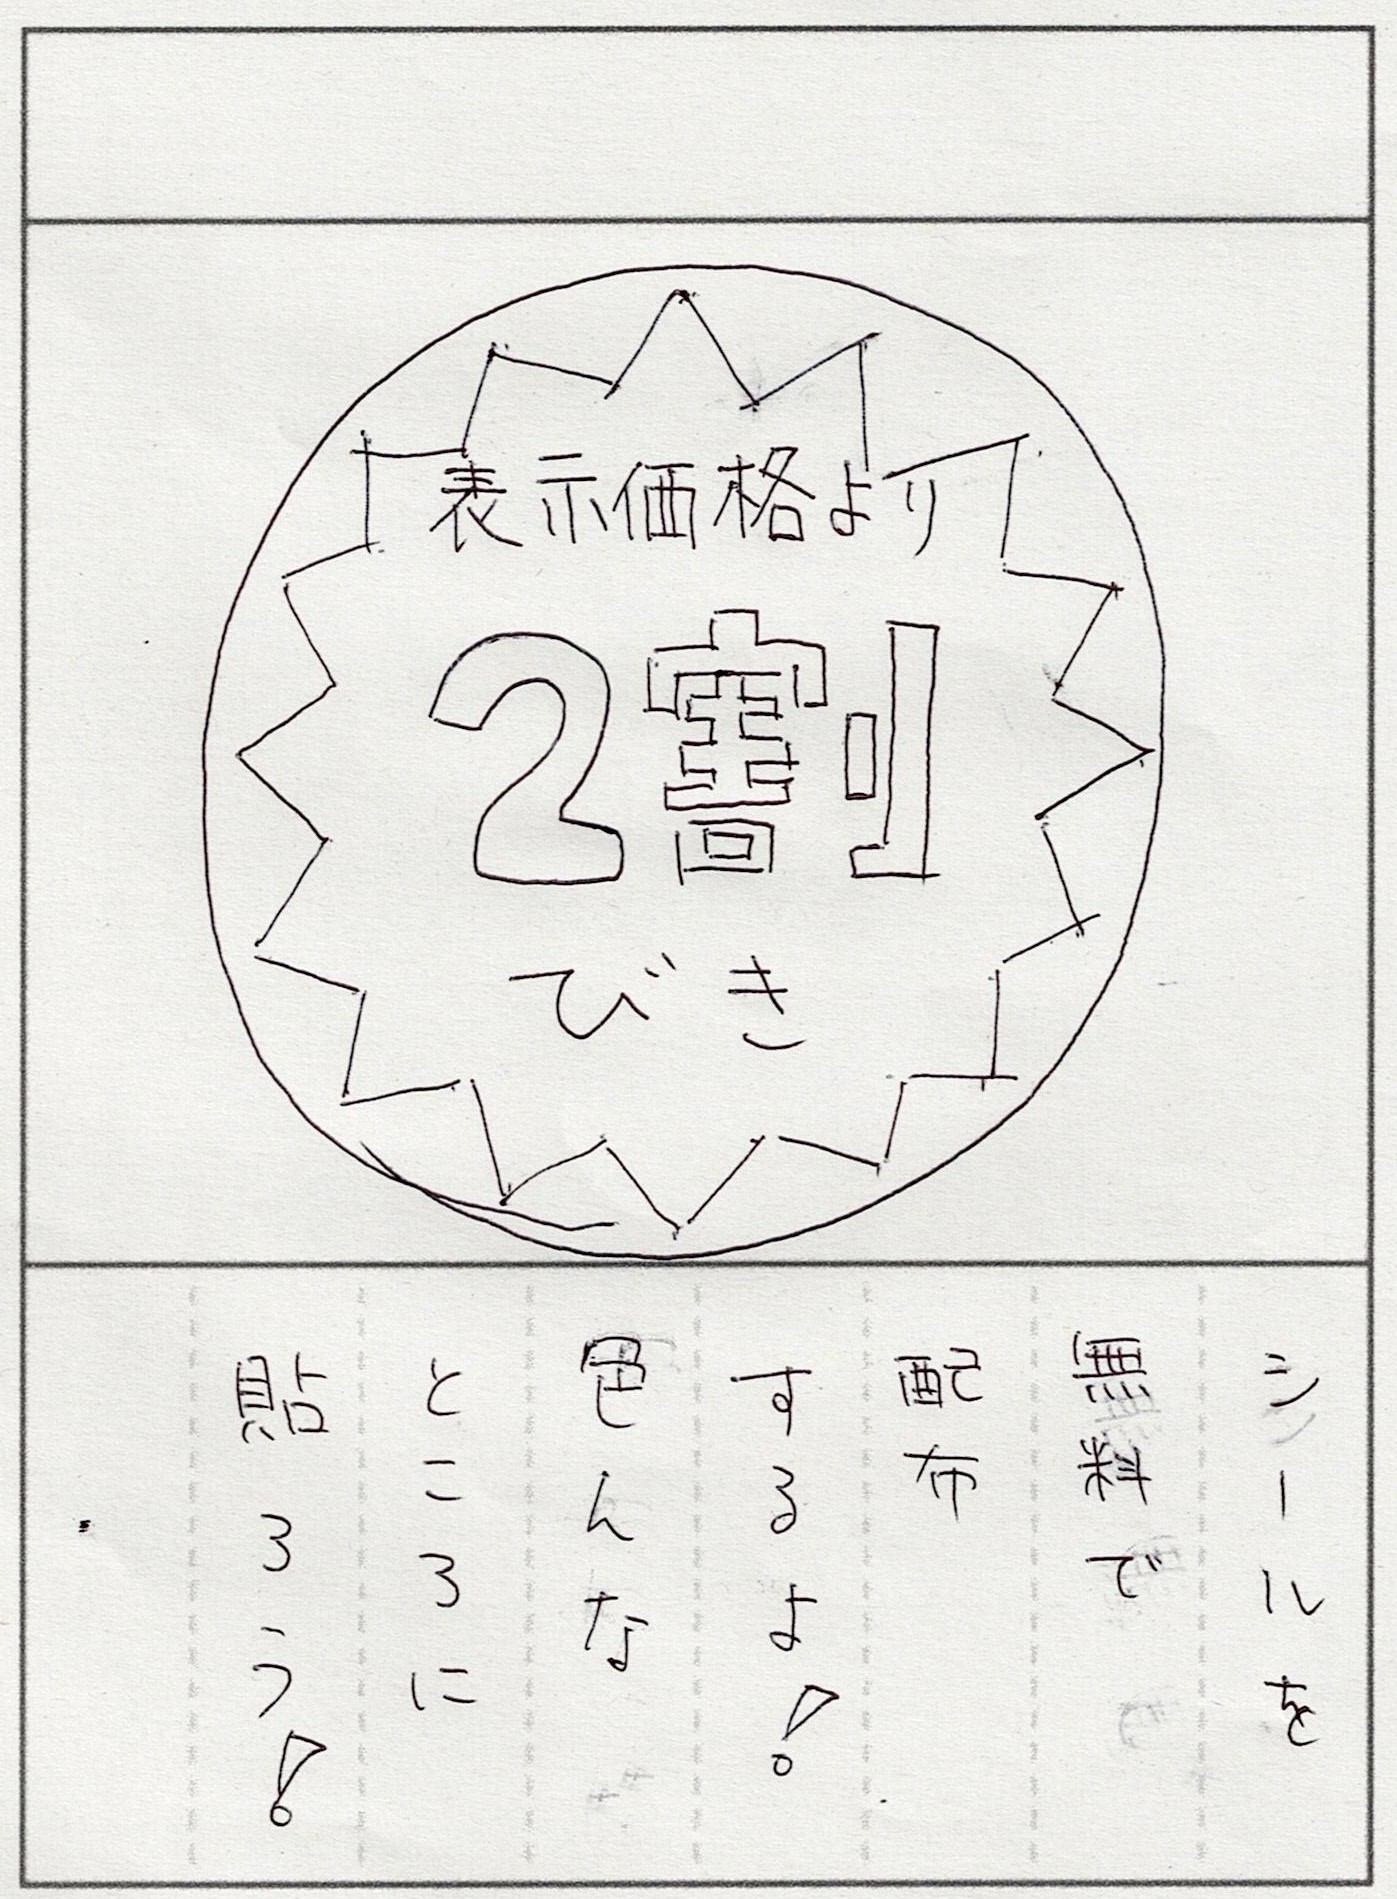 表示価格より
2割
びき
シールを
無料で
配布
するよ!
色んな
ところに
貼ろう!